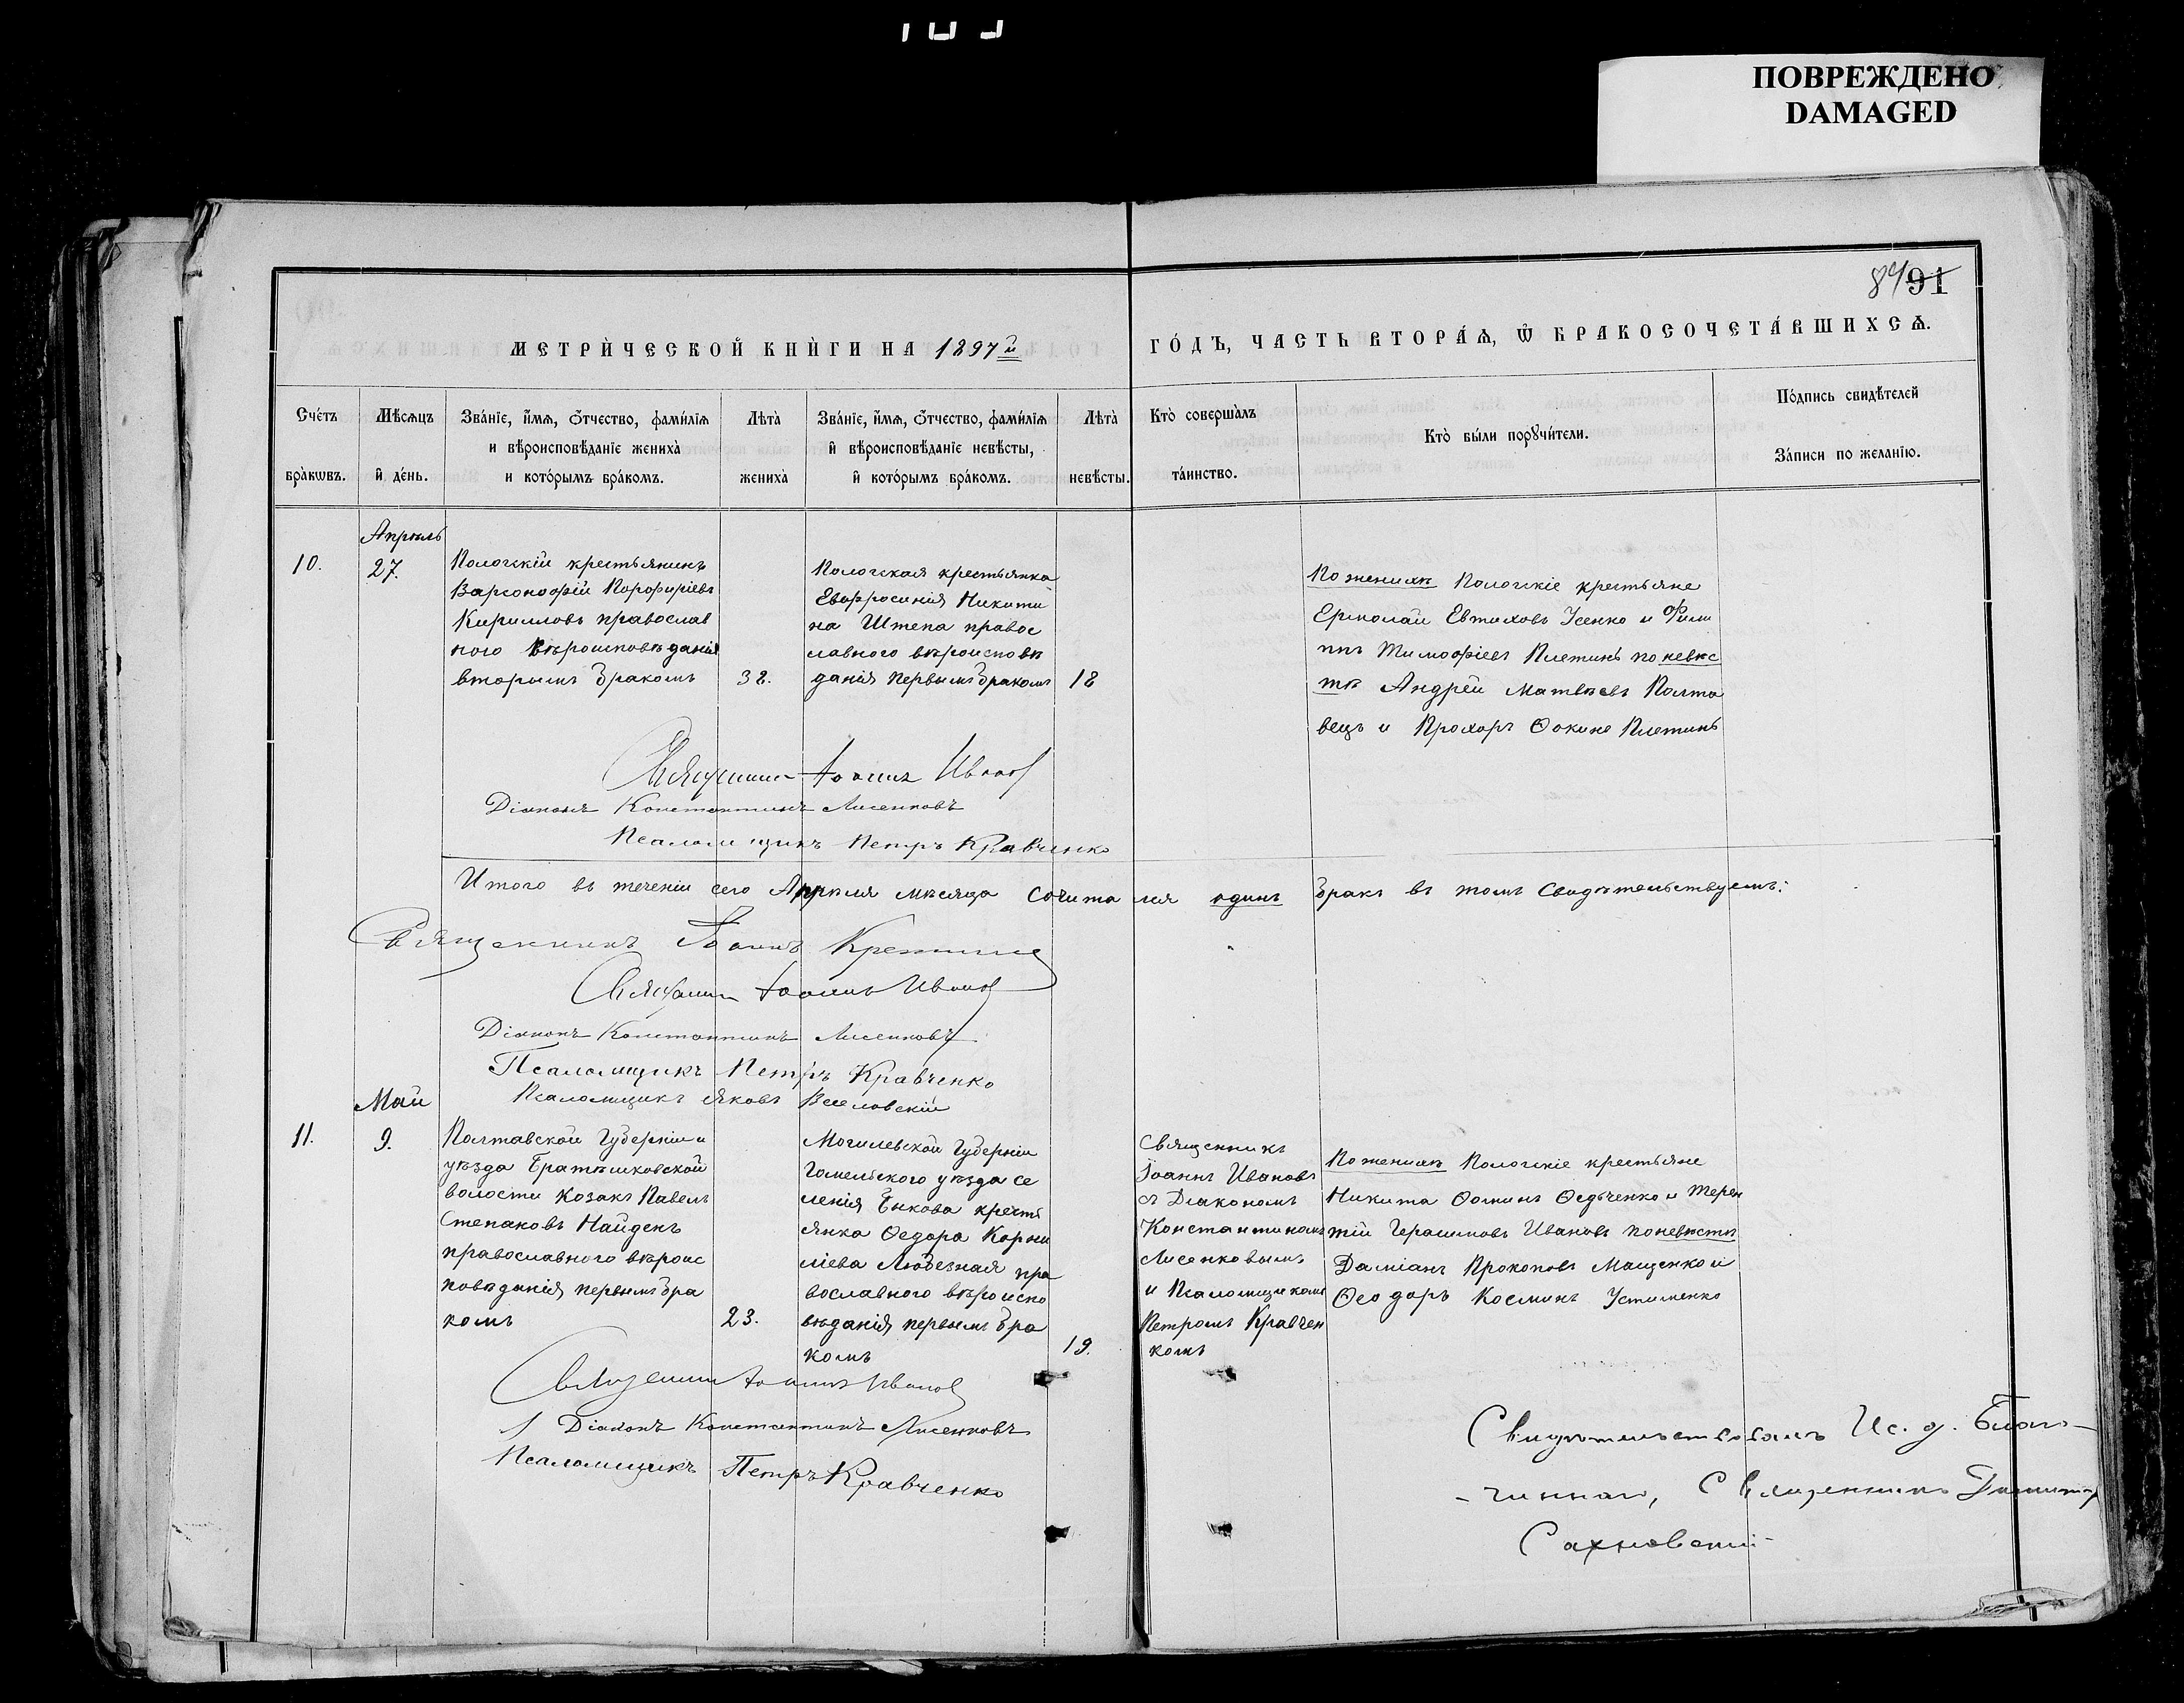 ПОВРЕЖДЕНО
DAMAGED
84 91
МЕТРИ́ЧЕСКОЙ КНИ́ГИ НА 1897й
ГО́ДЪ, ЧАСТЬ ВТОРА́Ѧ, Ѽ БРАКОСОЧЕТА́ВШИХСѦ.
Сче́тъ бра́кѡвъ.
Мѣ́сѧцъ й де́нь.
Зва́нїе, и҆́мѧ, ѻ҆́тчество, фами́лїѧ
и вѣроисповѣ́данїе жениха̀
и кото́рымъ бра́комъ.
Лѣта̀ жениха̀
Зва́нїе, и҆́мѧ, ѻ҆́тчество, фами́лїѧ
й вѣроисповѣ́данїе невѣ́сты,
й кото́рымъ бра́комъ.
Лѣта̀ невѣ́сты.
Кто̀ соверша́лъ
та́инство.
Кто̀ бы́ли порꙋчи́тели.
По́дпись свидѣ́телей
За́писи по жела́нїю.
Апрѣль
10.
27.
Пологскій крестьянинъ
Варсонофій Порфиріевъ
Кирилловъ православ
ного вѣроисповѣданія
вторымъ бракомъ
38.
Пологская крестьянка
Евфросинія Никити
на Штепа правос
лавного вѣроисповѣ
данія первымъ бракомъ
18
По женихѣ Пологскіе крестьяне
Ермолай Евтиховъ Усенко и Фили
ппъ Тимофіевъ Плетинь по невѣс
тѣ Андрей Матвѣевъ Полта
вецъ и Прохоръ Фокинъ Плетинь
Священникъ Іоаннъ Ивановъ
Діаконъ Константинъ Лисенковъ
Псаломщикъ Петръ Кравченко
Итого въ теченіи сего Апрѣля мѣсяца сочитался одинъ бракъ въ томъ свидѣтельствуемъ:
Священникъ Іоаннъ
Священникъ Іоаннъ Ивановъ
Діаконъ Константинъ Лисенковъ
Псаломщикъ Петръ Кравченко
Псаломщикъ Яковъ Веселовскій
Май
11.
9.
Полтавской Губерніи и
уѣзда Братѣшковской
волости козакъ Павелъ
Степановъ Найденъ
православного вѣроис
повѣданія первымъ бра
комъ
23.
Могилевской Губерніи
Гомельского уѣзда се
ленія крестѣ
янка Ѳедора Корни
ліева Любезная пра
вославного вѣроиспо
вѣданія первымъ бра
комъ
19.
Священникъ
Іоаннъ Ивановъ
съ Діакономъ
Константиномъ
Лисенковымъ
и Псаломщикомъ
Петромъ Кравчен
комъ
По женихѣ Пологскіе крестьяне
Никита Ѳоминъ Ѳедьченко и Терен
тій Герасимовъ Ивановъ по невѣстѣ
Даміанъ Прокоповъ Мащенко и
Ѳеодоръ Космин Устименко
Священникъ Іоаннъ Ивановъ
Діаконъ Константинъ Лисенковъ
Псаломщикъ Петръ Кравченко
Свидѣтельствовалъ Ис. д. Благо-
-чиннаго, Священникъ Димитр
Сахновский